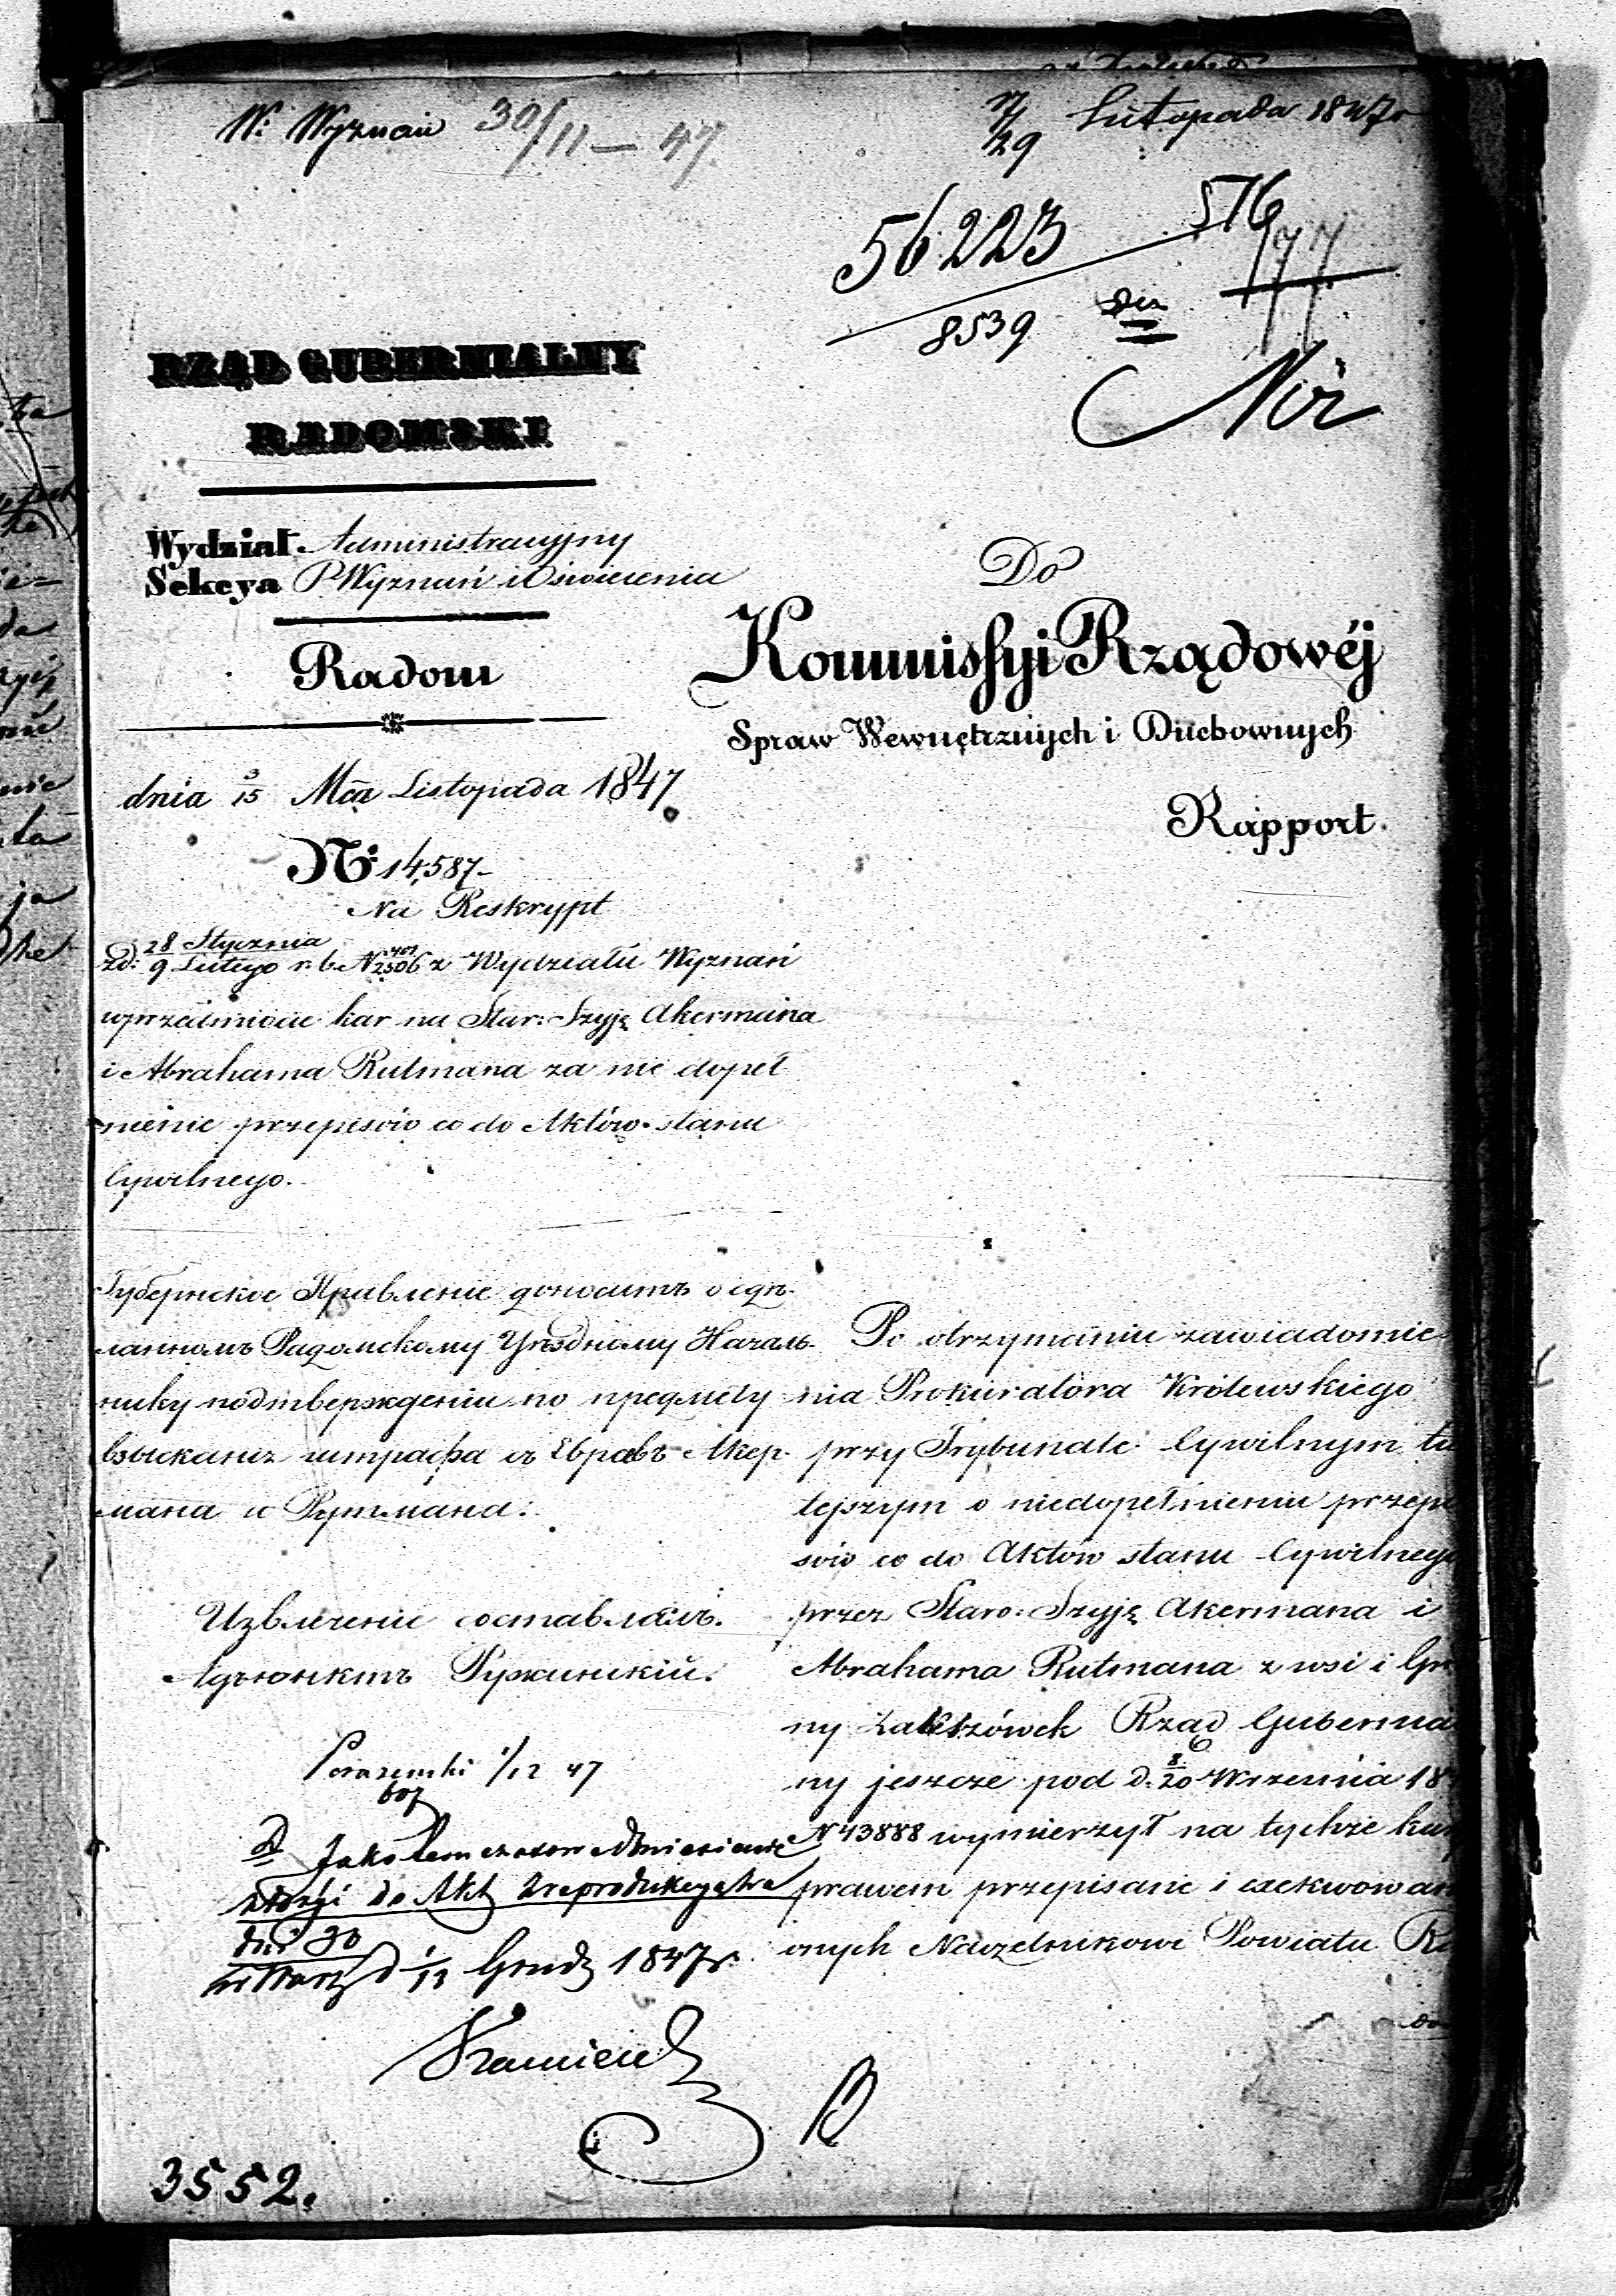 W: Wyznań 30/11 — 47.
17/29 Listopada 1847r
56223
8539
576
177
RZĄD GUBERNIALNY
RADOMSKI
Wydział. Administracyjny
Sekcya P Wyznań i Oświecenia
Radom
dnia 3/15 Mca Listopada 1847
N: 14,587-
Na Reskrypt
zd: 28 Stycznia / 9 Lutego r. b. N 2506 z Wydziału Wyznań
w przedmiocie kar na Star: Szyję Akermana
i Abrahama Rutmana za nie dopeł
nienie przepisów co do Aktów stanu
Cywilnego.
Do
Kommissyi Rządowéj
Spraw Wewnętrznych i Duchownych
Rapport.
Губернское Правленіе доноситъ о сдѣ-
ланномъ Радомскому Уѣздному Началь-
нику подтвержденіи по предмету
взысканія штрафа съ Евреевъ Акер-
мана и Рутмана.
Извлеченіе составлялъ.
Адъюнктъ
1/12 47
607
Jako
złożyć do Akt
dni 30
d 1/13 Grudz 1847r.
3552.
Po otrzymaniu zawiadomie
nia Prokuratora Królewskiego
przy Trybunale Cywilnym tu
tejszym o niedopełnieniu przepi
sów co do Aktów stanu Cywilnego
przez Staro: Szyję Akermana i
Abrahama Rutmana z wsi i Gmi
ny Rząd Gubernial
ny jeszcze pod d. 8/20 Września 18
N 43888 wymierzył na tychże kary
prawem przepisane i exekwowan
onych Naczelnikowi Powiatu Ra